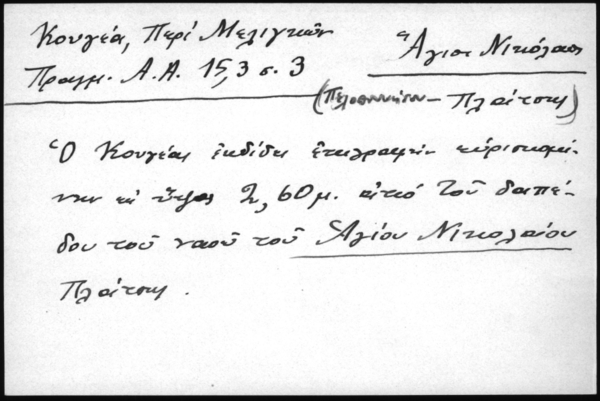 Κουγέα, Περί Μελιγκῶν
Πραγμ. Α.Α. 15,3 σ. 3
Ἅγιος Νικόλαος
(Πελοπόννησον - Πλάτσης)
Ὁ Κουγέας ἐκδίδει ἐπιγραφὴν εὑρισκομέ-
νην εἰς ὕψος 2,60 μ. ἀπό τοῦ δαπέ-
δου τοῦ ναοῦ τοῦ Ἁγίου Νικολαίου
Πλάτσης.